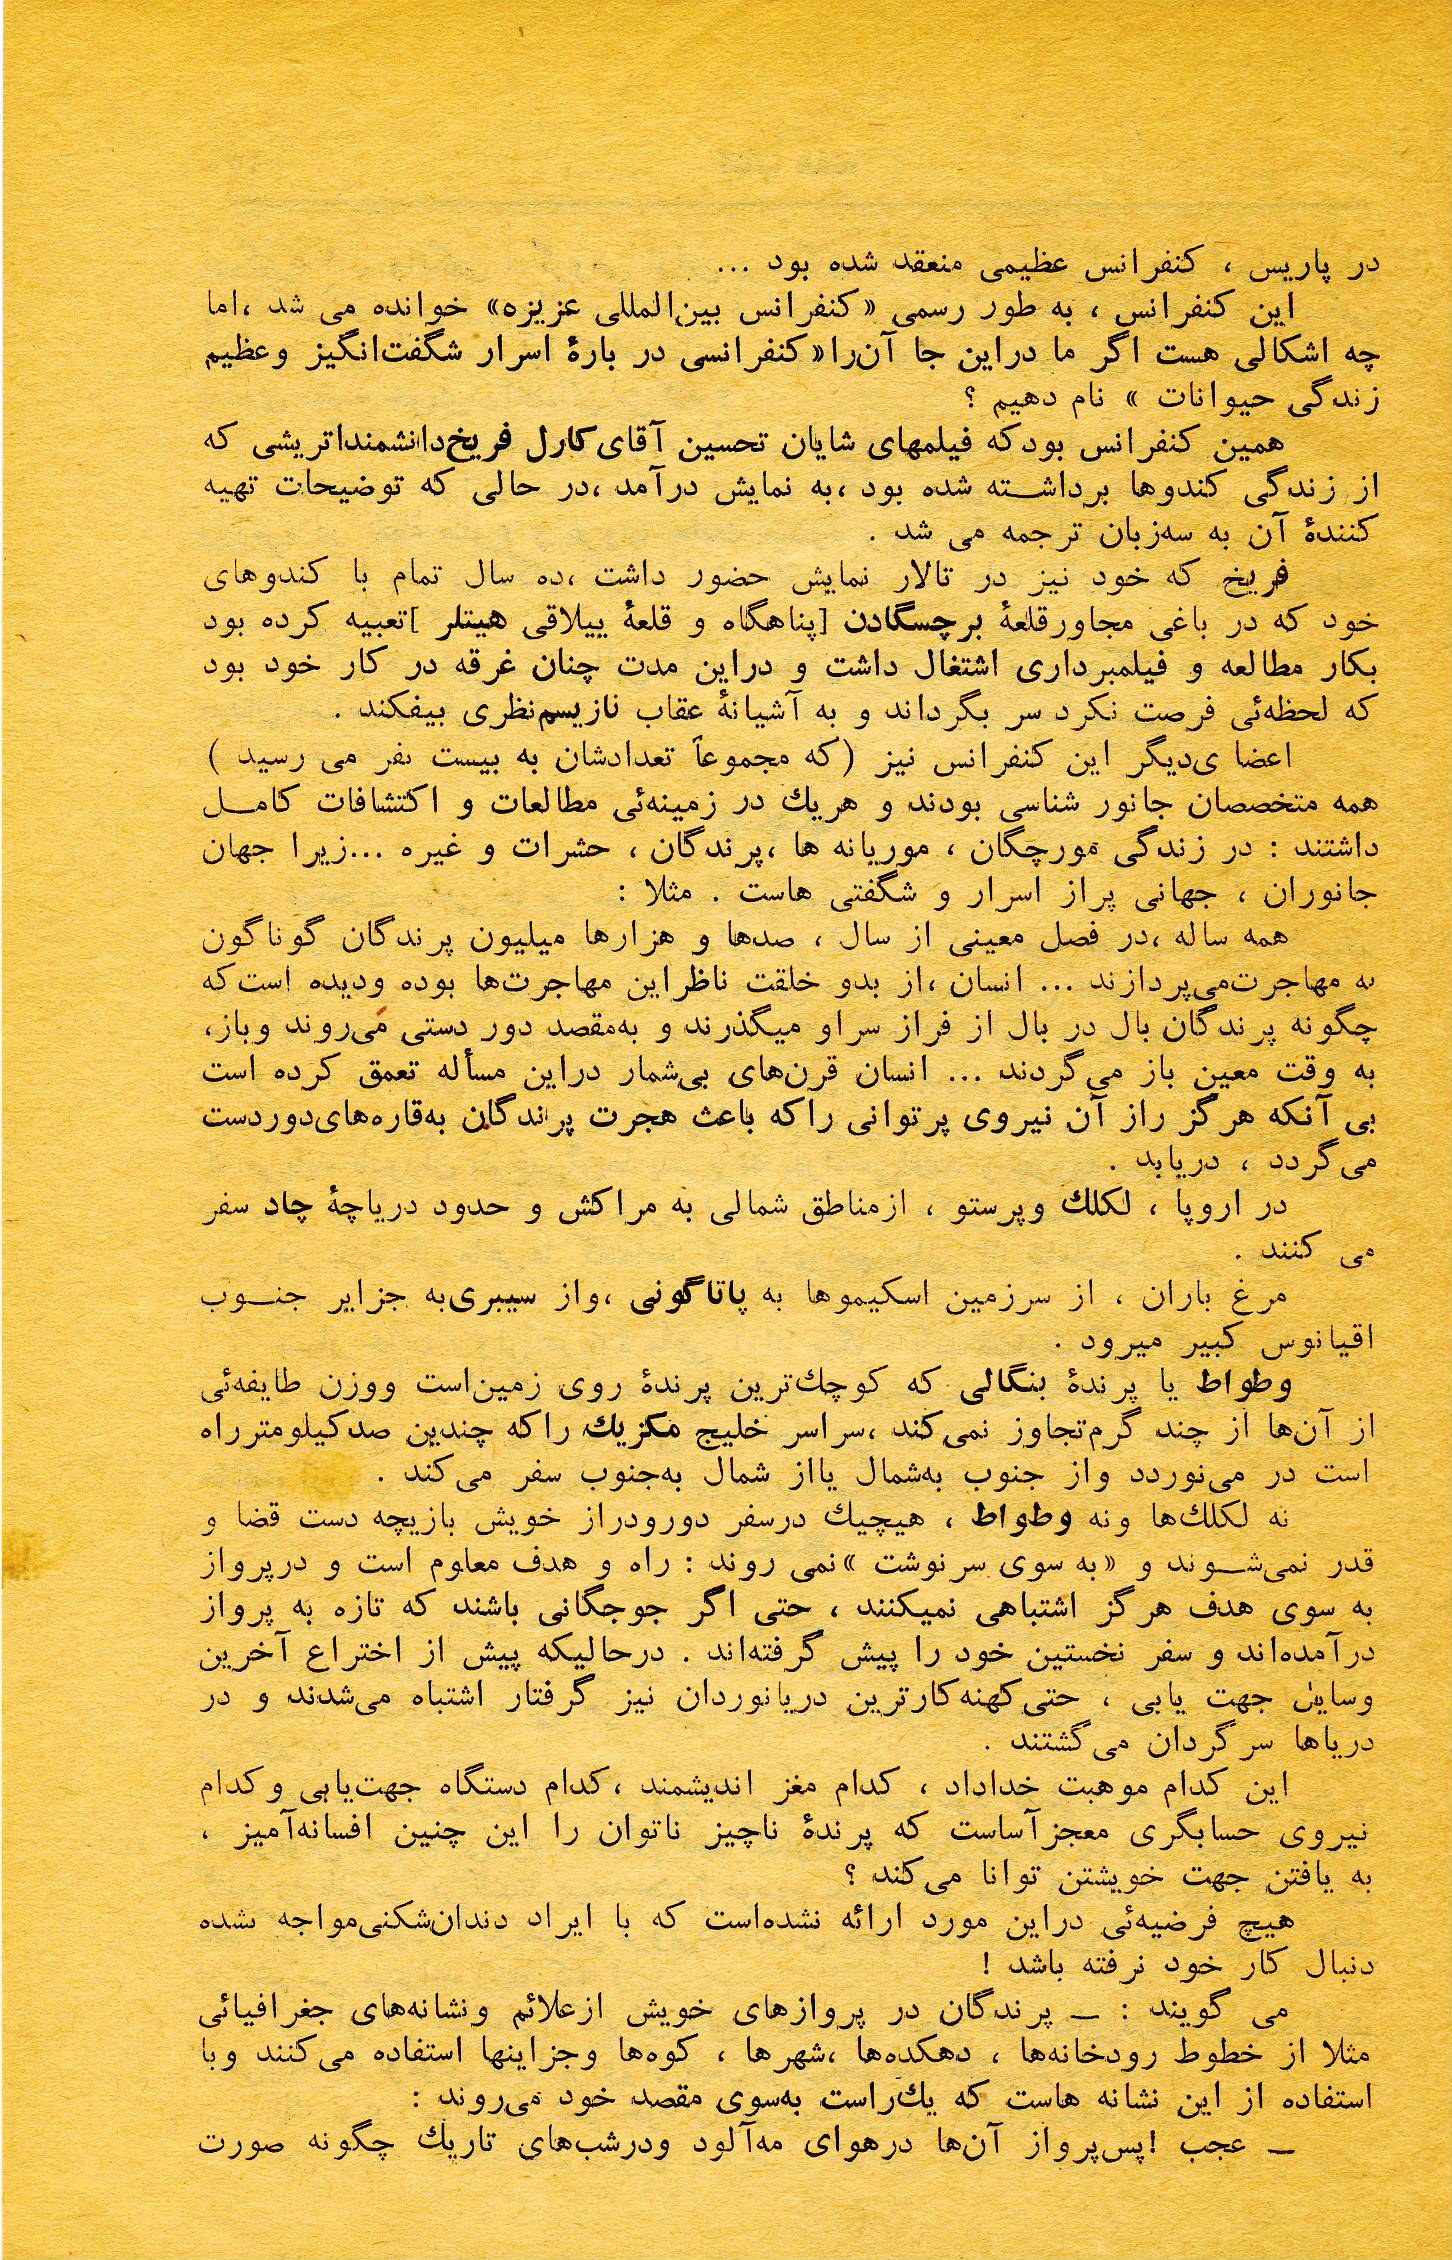 در پاریس ، کنفرانس عظیمی منعقد شده بود ...
این کنفرانس ، به طور رسمی «کنفرانس بین‌المللی عزیزه» خوانده می شد ،اما
چه اشکالی هست اگر ما دراین جا آن‌را«کنفرانسی در بارهٔ اسرار شگفت‌انگیز وعظیم
زندگی حیوانات » نام دهیم ؟
همین کنفرانس بودکه فیلمهای شایان تحسین آقای کارل فریخ‌دانشمنداتریشی که
از زندگی کندوها برداشـته شده بود ،به نمایش درآمد ،در حالی که توضیحات تهیه
کنندهٔ آن به سه‌زبان ترجمه می شد .
فریخ که خود نیز در تالار نمایش حضور داشت ،ده سال تمام با کندوهای
خود که در باغی مجاورقلعهٔ برچسگادن [پناهگاه و قلعهٔ ییلاقی هیتلر ]تعبیه کرده بود
بکار مطالعه و فیلمبرداری اشتغال داشت و دراین مدت چنان غرقه در کار خود بود
که لحظه‌ئی فرصت نکرد سر بگرداند و به آشیانهٔ عقاب نازیسم‌نظری بیفکند .
اعضا ی‌دیگر این کنفرانس نیز (که مجموعاً تعدادشان به بیست نفر می رسید )
همه متخصصان جانور شناسی بودند و هریك در زمینه‌ئی مطالعات و اکتشافات کامـل
داشتند : در زندگی مورچگان ، موریانه ها ،پرندگان ، حشرات و غیره ...زیرا جهان
جانوران ، جهانی پراز اسرار و شگفتی هاست . مثلا :
همه ساله ،در فصل معینی از سال ، صدها و هزارها میلیون پرندگان گوناگون
به مهاجرت‌می‌پردازند ... انسان ،از بدو خلقت ناظراین مهاجرت‌ها بوده ودیده است‌که
چگونه پرندگان بال در بال از فراز سراو میگذرند و به‌مقصد دور دستی می‌روند وباز،
به وقت معین باز می‌گردند ... انسان قرن‌های بی‌شمار دراین مسأله تعمق کرده است
بی آنکه هرگز راز آن نیروی پرتوانی راکه باعث هجرت پرندگان به‌قاره‌های‌دوردست
می‌گردد ، دریابد .
در اروپا ، لکلك وپرستو ، ازمناطق شمالی به مراکش و حدود دریاچهٔ چاد سفر
می کنند .
مرغ باران ، از سرزمین اسکیموها به پاتاگونی ،واز سیبری‌به جزایر جنـوب
اقیانوس کبیر میرود .
وطواط یا پرندهٔ بنگالی که کوچك‌ترین پرندهٔ روی زمین‌است ووزن طایفه‌ئی
از آن‌ها از چند گرم‌تجاوز نمی‌کند ،سراسر خلیج مکزیك راکه چندین صدکیلومترراه
است در می‌نوردد واز جنوب به‌شمال یااز شمال به‌جنوب سفر می‌کند .
نه لکلك‌ها ونه وطواط ، هیچیك درسفر دورودراز خویش بازیچه دست قضا و
قدر نمی‌شـوند و «به سوی سرنوشت »نمی روند : راه و هدف معلوم است و درپرواز
به سوی هدف هرگز اشتباهی نمیکنند ، حتی اگر جوجگانی باشند که تازه به پرواز
درآمده‌اند و سفر نخستین خود را پیش گرفته‌اند . درحالیکه پیش از اختراع آخرین
وسایل جهت یابی ، حتی‌کهنه‌کارترین دریانوردان نیز گرفتار اشتباه می‌شدند و در
دریاها سرگردان می‌گشتند .
این کدام موهبت خداداد ، کدام مغز اندیشمند ،کدام دستگاه جهت‌یابی وکدام
نیروی حسابگری معجزآساست که پرندهٔ ناچیز ناتوان را این چنین افسانه‌آمیز ،
به یافتن جهت خویشتن توانا می‌کند ؟
هیچ فرضیه‌ئی دراین مورد ارائه نشده‌است که با ایراد دندان‌شکنی‌مواجه نشده
دنبال کار خود نرفته باشد !
می گویند : ـ پرندگان در پروازهای خویش ازعلائم ونشانه‌های جغرافیائی
مثلا از خطوط رودخانه‌ها ، دهکده‌ها ،شهرها ، کوه‌ها وجزاینها استفاده می‌کنند وبا
استفاده از این نشانه هاست که یك‌راست به‌سوی مقصد خود می‌روند :
ـ عجب !پس‌پرواز آن‌ها درهوای مه‌آلود ودرشب‌های تاریك چگونه صورت